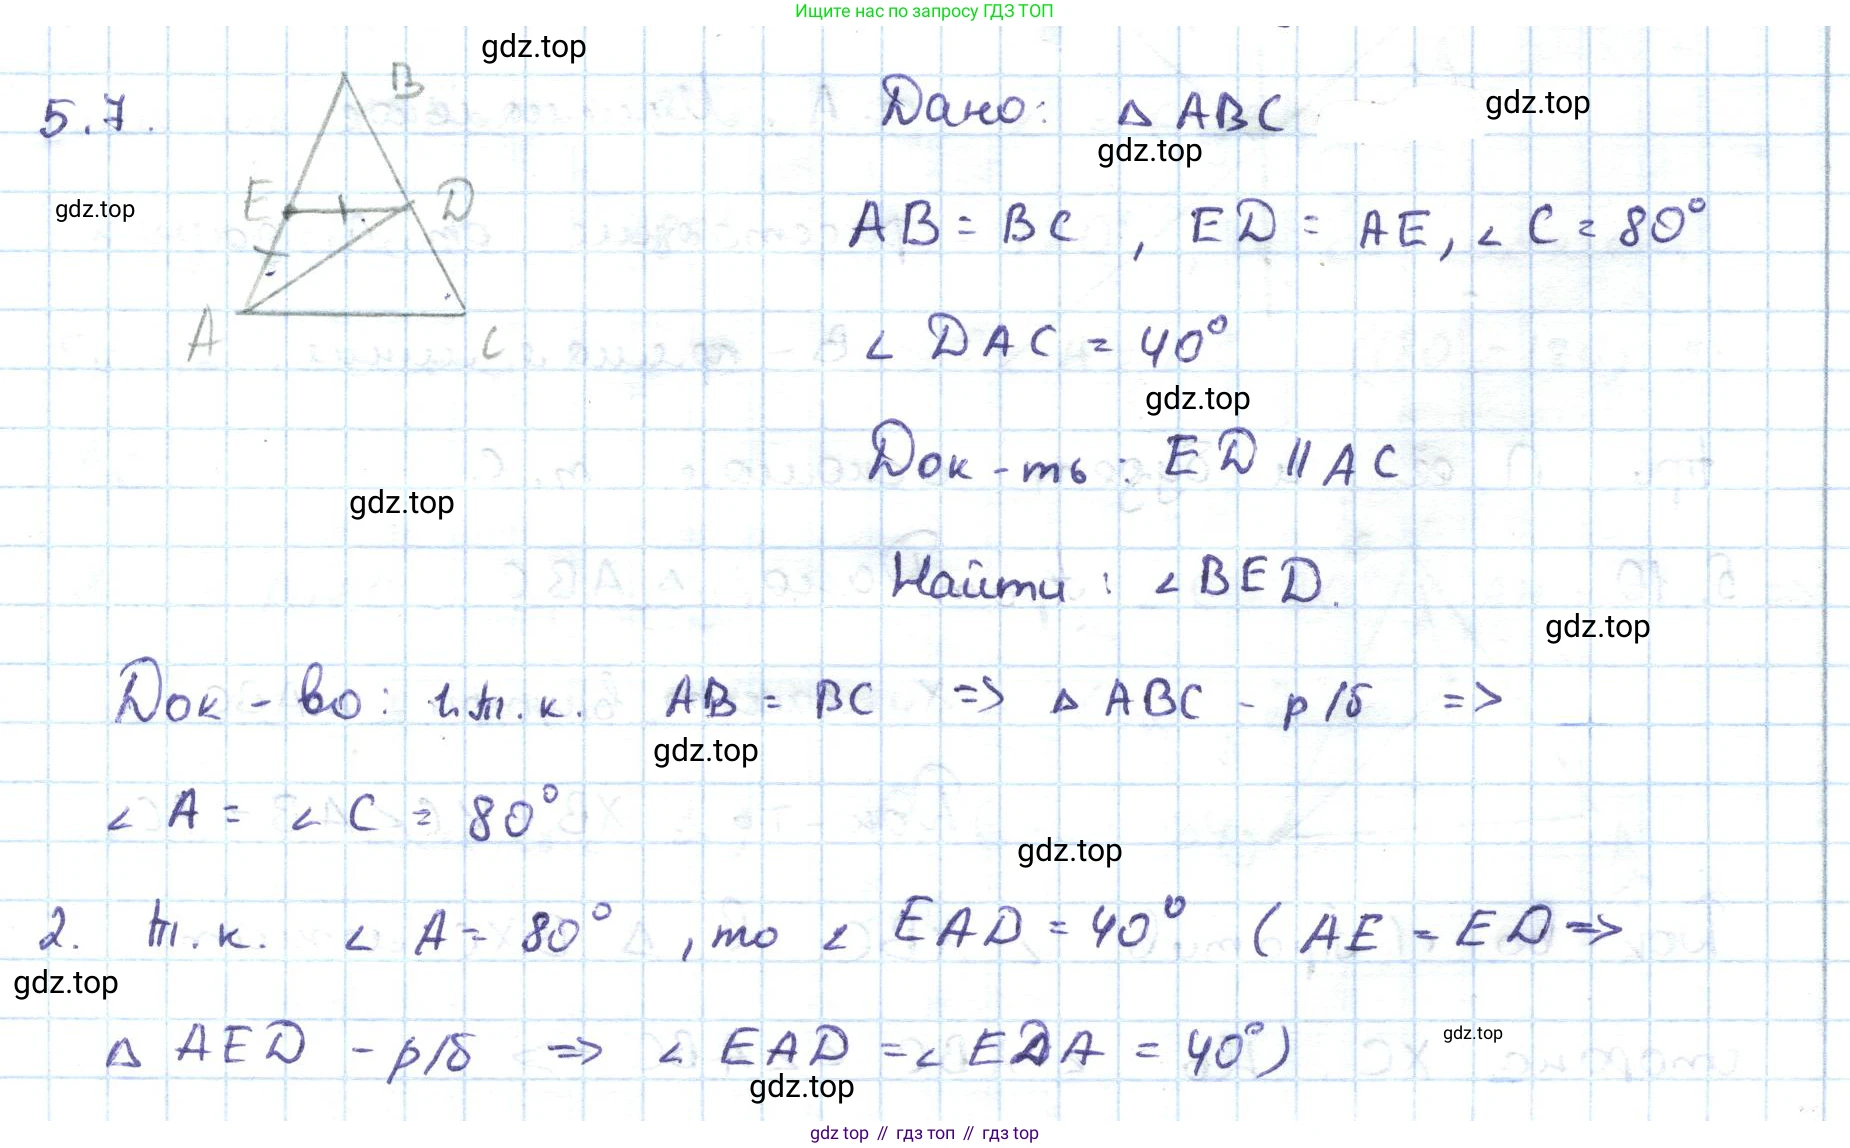 Ищите нас по запросу ГДЗ ТОП
gdz.top
5.7.
B
Дано: △ ABC
gdz.top
gdz.top
E
D
gdz.top
AB = BC, ED = AE, ∠ C = 80°
A
C
∠ DAC = 40°
gdz.top
Док-ть: ED || AC
gdz.top
Найти: ∠ BED.
gdz.top
Док-во: 1. т.к. AB = BC => △ ABC - р/б =>
gdz.top
∠ A = ∠ C = 80°
gdz.top
2. т.к. ∠ A = 80°, то ∠ EAD = 40° (AE = ED =>
gdz.top
△ AED - р/б => ∠ EAD = ∠ EDA = 40°)
gdz.top
gdz.top
gdz top // гдз топ // гдз top